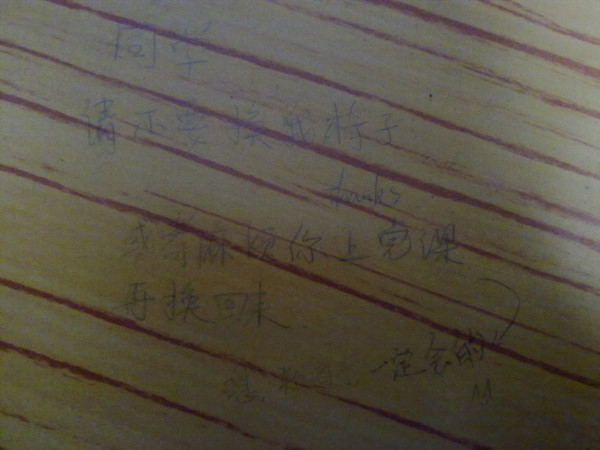 同学
请不要换我椅子
thanks
或者麻烦你上完课
再换回来
一定会的